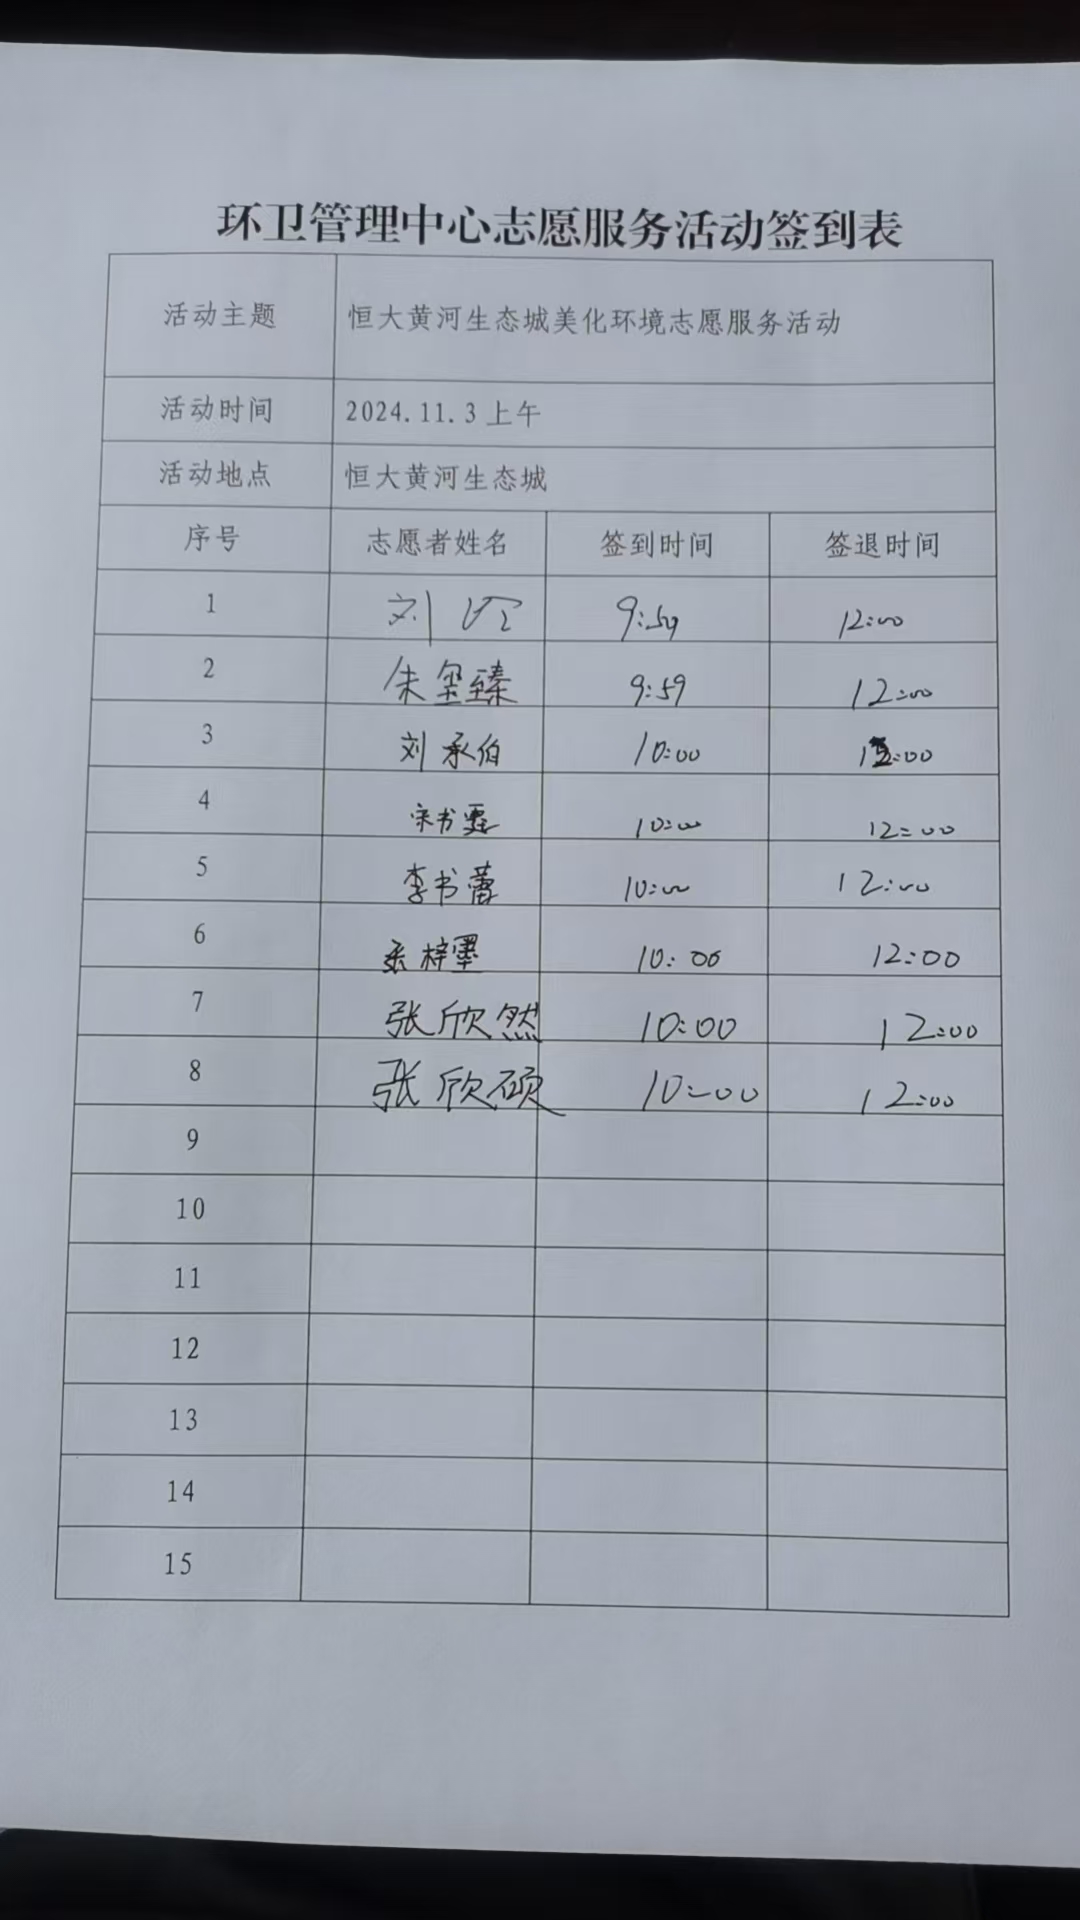 环卫管理中心志愿服务活动签到表
活动主题 恒大黄河生态城美化环境志愿服务活动
活动时间 2024.11.3上午
活动地点 恒大黄河生态城
序号 志愿者姓名 签到时间 签退时间
1 刘 9:59 12:00
2 朱玺臻 9:59 12:00
3 刘承伯 10:00 12:00
4 宋书霆 10:00 12:00
5 李书蕾 10:00 12:00
6 梓墨 10:00 12:00
7 张欣然 10:00 12:00
8 张欣硕 10:00 12:00
9
10
11
12
13
14
15